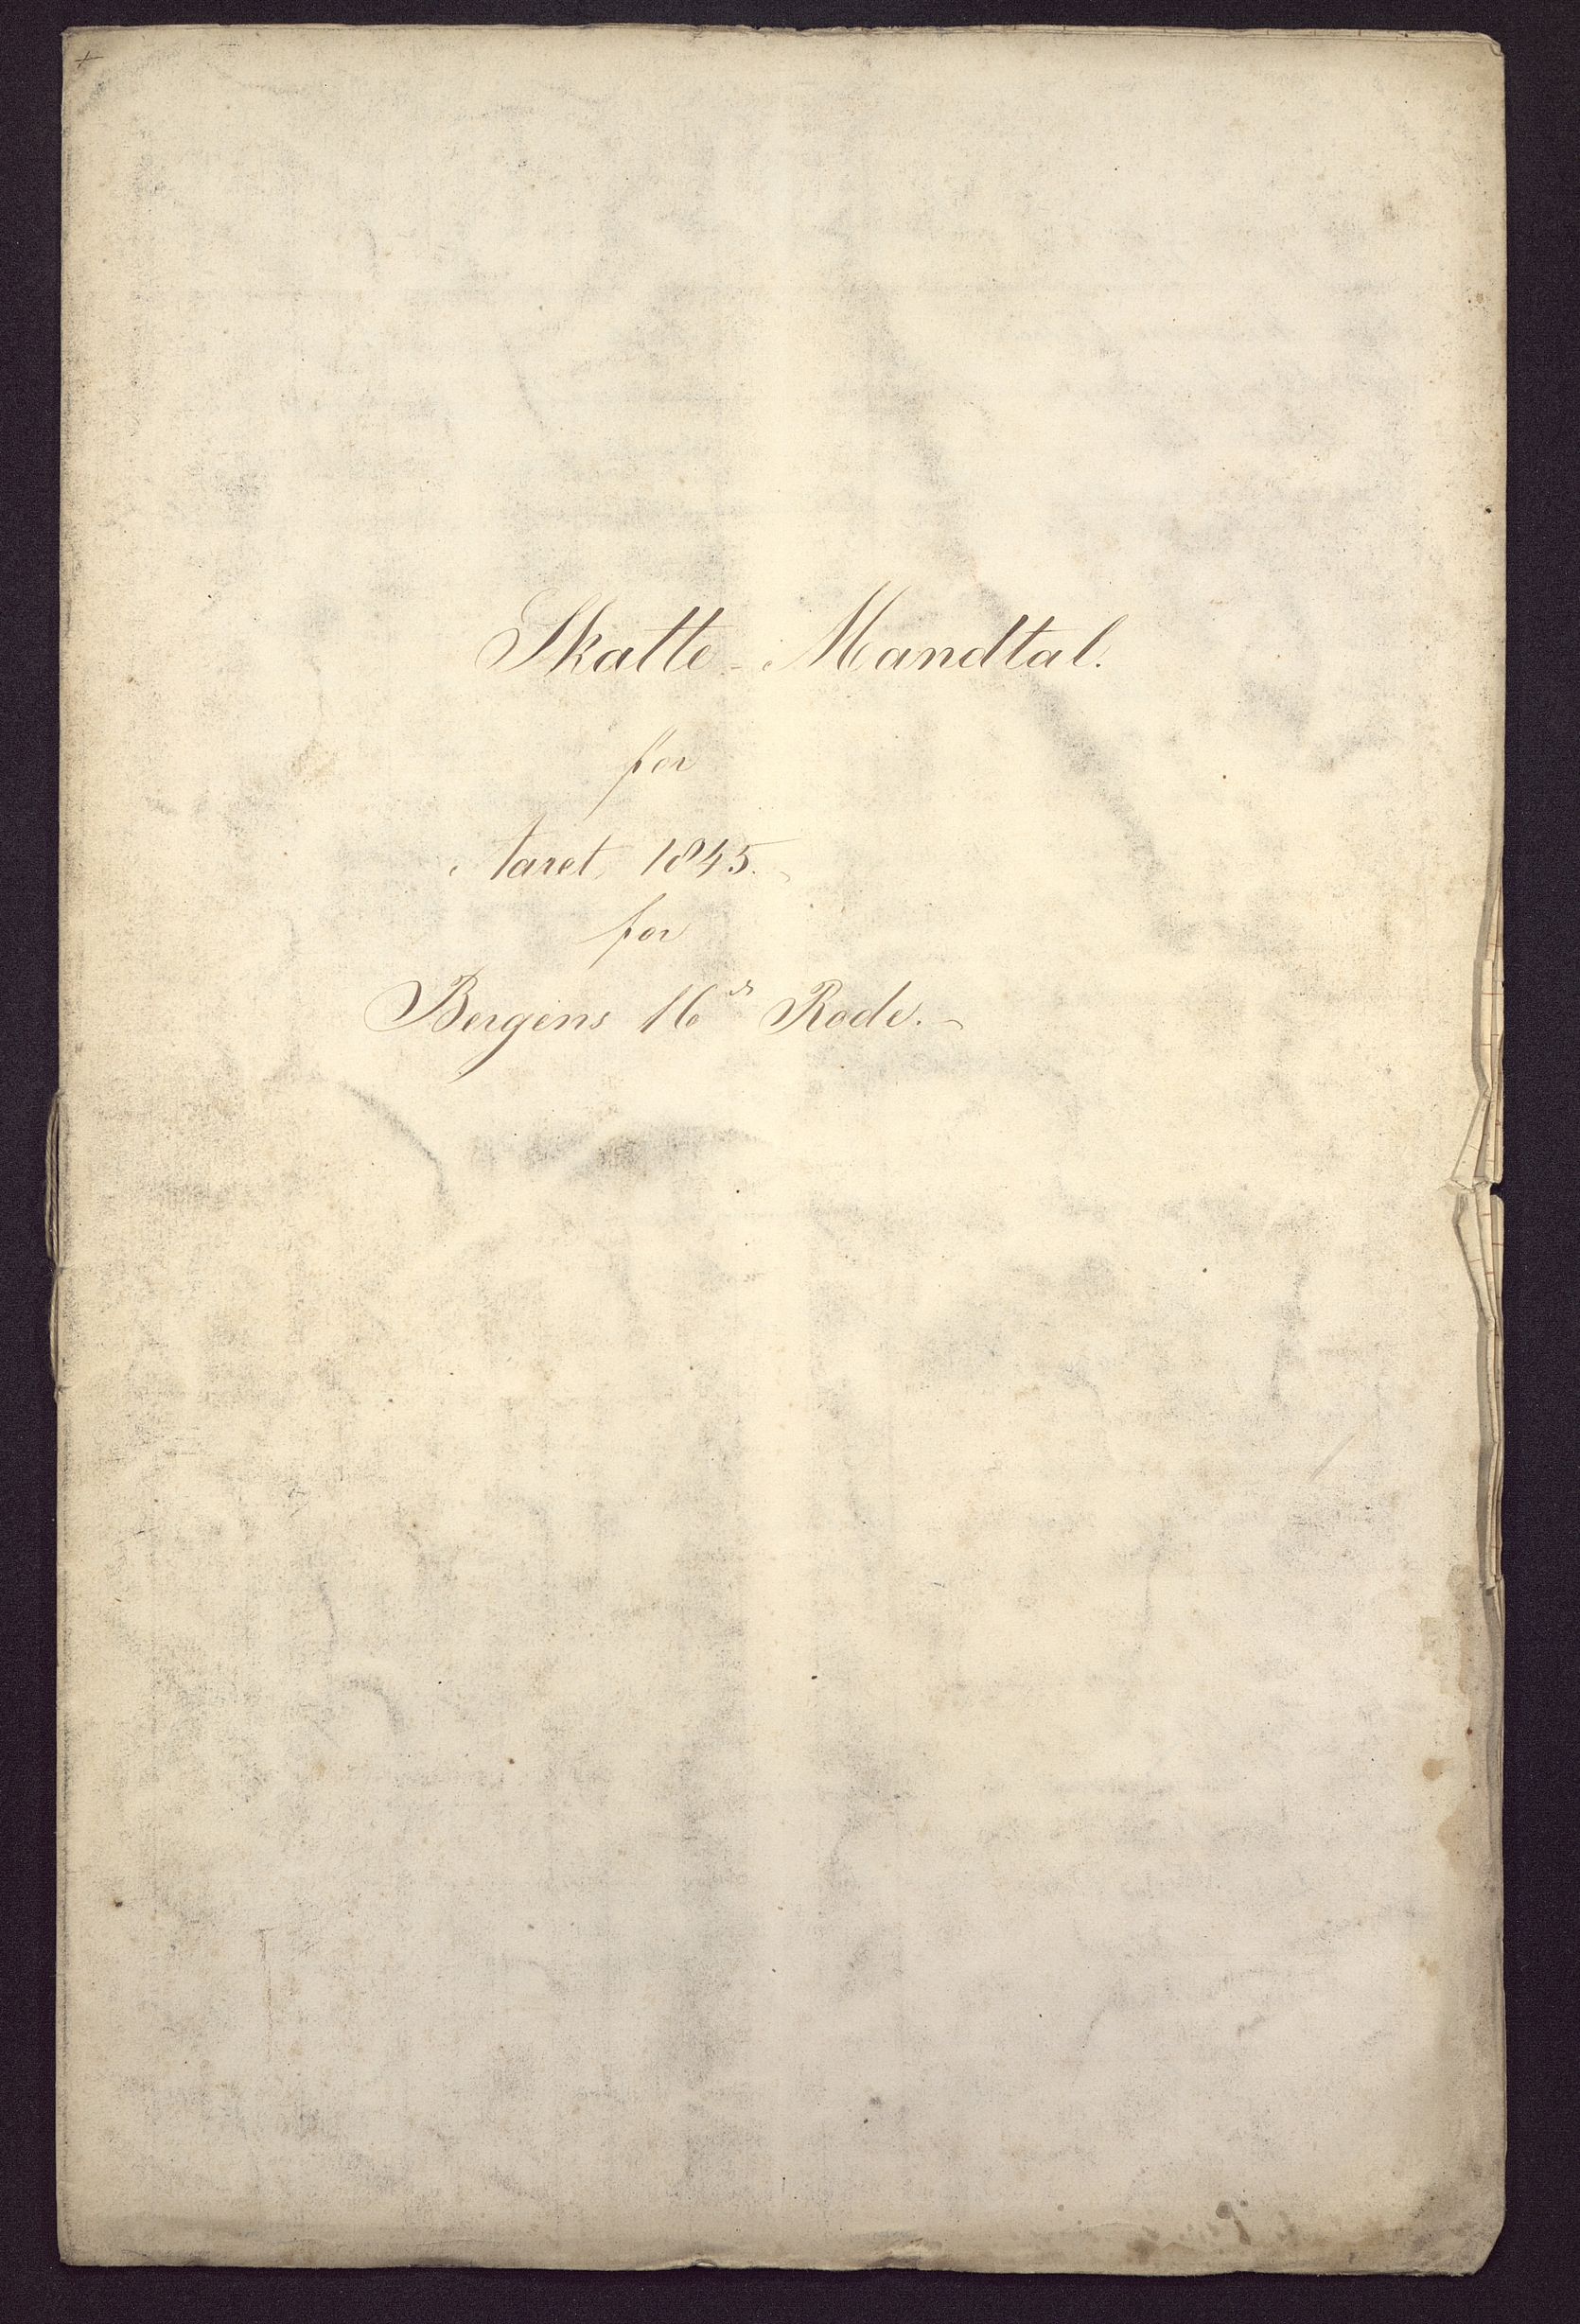 Skatte-Mandtal.
for
Aaret 1845.
for
Bergens 16de Rode.-